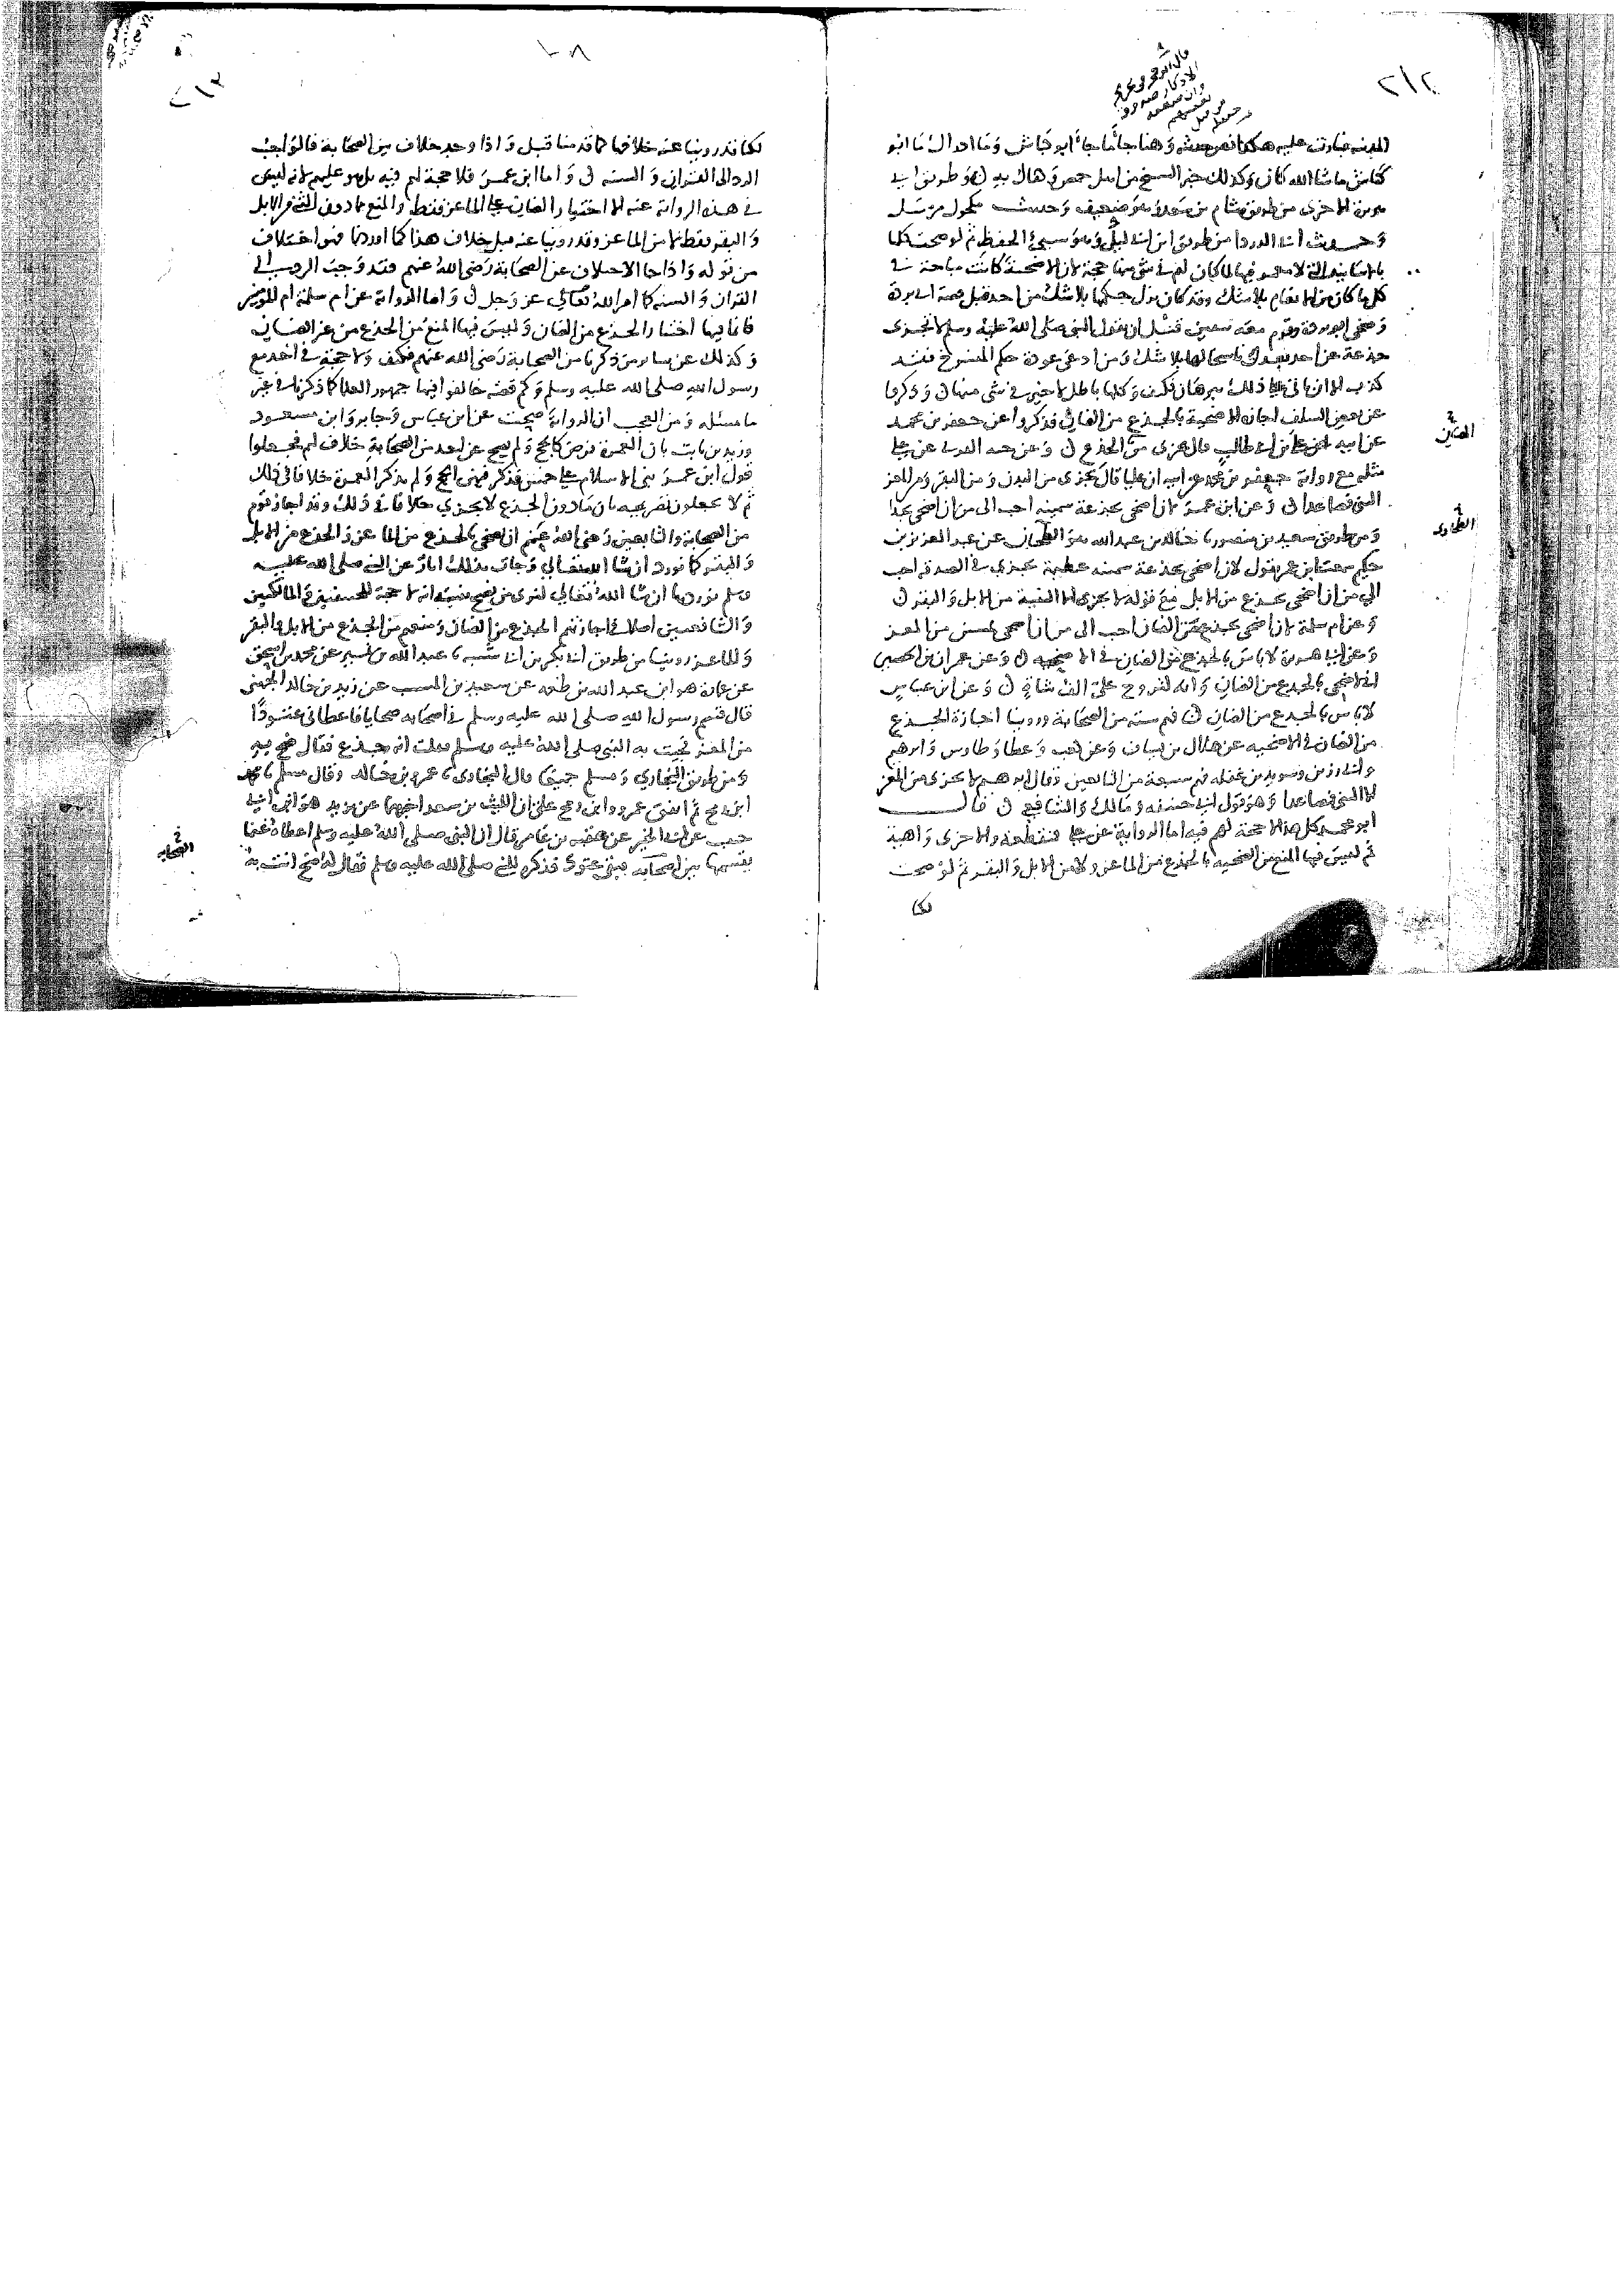 ٢١٢
المدينة فبارت عليه هكذا نص حديثه وهنا جا ما جا أبو كباش وما ادراك ما ابو
كباش ما شا الله كان وكذلك خبر الشيخ من اهل حمص وهاك به ن وطريق ابي
هريرة الاخرى من طريق هشام بن سعد وهو ضعيف وحديث مكحول مرسل
وحديث ابي الدردا من طريق ابن ابي ليلى وهو سيئ الحفظ ثم لو صحت كلها
بالاسانيد التي لا مغمز فيها لما كان لهم في شي منها حجة لان الاضحية كانت مباحة في
كل ما كان من الانعام بلا شك وقد كان نزل حكمها بلا شك من احد قبل قصة ابي بردة
وضحى ابو بردة وقوم معه بيقين قبل ان يقول النبي صلى الله عليه وسلم لا تجزى
جذعة عن احد بعدك ناسخا لها بلا شك ومن ادعى عودة حكم المنسوخ فقد
كذب الا ان ياتي على ذلك ببرهان فكيف وكلها باطل لا خير في شي منها ن وذكروا
عن بعض السلف اجازة الاضحية بالجذع من الضان فذكروا عن جعفر بن محمد
عن ابيه عن علي بن ابي طالب قال يجزى من الضان الجذع ن وعن حبة العرني عن علي
مثله مع رواية جعفر بن محمد عن ابيه ان عليا قال يجزى من البدن ومن البقر ومن المعز
الثني فصاعدا ن وعن ابن عمر لان اضحى بجذعة سمينة احب الى من ان اضحى بجدا
ومن طريق سعيد بن منصور نا خالد بن عبد الله هو الطحان عن عبد العزيز بن
حكيم سمعت ابن عمر يقول لان اضحى بجذعة سمينة عظيمة تجزى في الصدقة احب
الي من ان اضحى بجذع من الابل مع قوله لا يجزى الا الثنية من الابل والبقر ن
وعن ام سلمة لان اضحى بجذع من الضان احب الى من ان اضحى بمسن من المعز
وعن ابي هريرة لا باس بالجذع من الضان في الاضحية ن وعن عمران بن الحصين
اني لاضحى بالجذع من الضان وانه لتروح على الف شاة ن وعن ابن عباس
لا باس بالجذع من الضان ن فهم ستة من الصحابة وروينا اجازة الجذع
من الضان في الاضحية عن هلال بن يساف وعن كعب وعطا وطاوس وابرهيم
وابي رزين وسويد بن غفلة فهم سبعة من التابعين وقال ابرهيم لا يجزى من المعز
الا الثني فصاعدا وهو قول ابي حنيفة ومالك والشافعي ن قال
ابو محمد كل هذا لا حجة لهم فيه اما الرواية عن علي فمنقطعة والاخرى واهية
ثم ليس فيها المنع من التضحية بالجذع من الماعز ولا من الابل والبقر ثم لو صحت
لكنا
الضان
الطحاوى
٢١٣
١٠٨
لكنا قد روينا عنه خلافها كما قدمنا قبل واذا وجد خلاف بين الصحابة فالواجب
الرد الى القران والسنة ن واما ابن عمر فلا حجة لهم فيه بل هو عليهم لانه ليس
في هذه الرواية عنه الا اختيار الضان على الماعز فقط والمنع مما دون الثني من الابل
والبقر فقط لا من الماعز وقد روينا عنه قبل خلاف هذا كما اوردنا فهو اختلاف
من قوله واذا جا الاختلاف عن الصحابة رضى الله عنهم فقد وجب الرد الى
القران والسنة كما امر الله تعالى عز وجل ن واما الرواية عن ام سلمة ام المومنين
فانما فيها اختيار الجذع من الضان وليس فيها المنع من الجذع من غير الضان
وكذلك عن سائر من ذكرنا من الصحابة رضى الله عنهم فكيف ولا حجة في احد مع
رسول الله صلى الله عليه وسلم وكم قصة خالفوا فيها جمهور العلما كما ذكرنا في غير
ما مسئلة ومن العجب ان الرواية صحت عن ابن عباس وجابر وابن مسعود
وزيد بن ثابت بان العمرة فرض كالحج ولم يصح عن احد من الصحابة خلاف لهم فجعلوا
قول ابن عمر بنى الاسلام على خمس فذكر فيهن الحج ولم يذكر العمرة خلافا في ذلك
ثم لا يجعلون تصريحه بان ما دون الجذع لا يجزي خلافا في ذلك وقد اجاز قوم
من الصحابة والتابعين رضى الله عنهم ان يضحى بالجذع من الماعز والجذع من الابل
والبقر كما نورد ان شا الله تعالى وجات بذلك اثار عن النبي صلى الله عليه
وسلم نوردها ان شا الله تعالى لنرى من ينصح نفسه انه لا حجة للحنفيين والمالكيين
والشافعيين اصلا في اجازتهم الجذع من الضان ومنعهم من الجذع من الابل والبقر
والماعز روينا من طريق ابي بكر بن ابي شيبة نا عبد الله بن نمير عن محمد بن اسحق
عن عمارة هو ابن عبد الله بن طعمة عن سعيد بن المسيب عن زيد بن خالد الجهنى
قال قسم رسول الله صلى الله عليه وسلم في اصحابه ضحايا فاعطانى عتودا
من المعز فجيت به النبي صلى الله عليه وسلم فقلت انه جذع فقال ضح به
ومن طريق البخاري ومسلم جميعا قال البخارى نا عمرو بن خالد وقال مسلم نا محمد
ابن رمح ثم اتفق عمرو وابن رمح على ان الليث بن سعد اخبرهما عن يزيد هو ابن ابي
حبيب عن ابي الخير عن عقبه بن عامر قال ان النبي صلى الله عليه وسلم اعطاه غنما
يقسمها بين اصحابه فبقى عتود فذكره للنبي صلى الله عليه وسلم فقال له ضح انت به
الصحابه